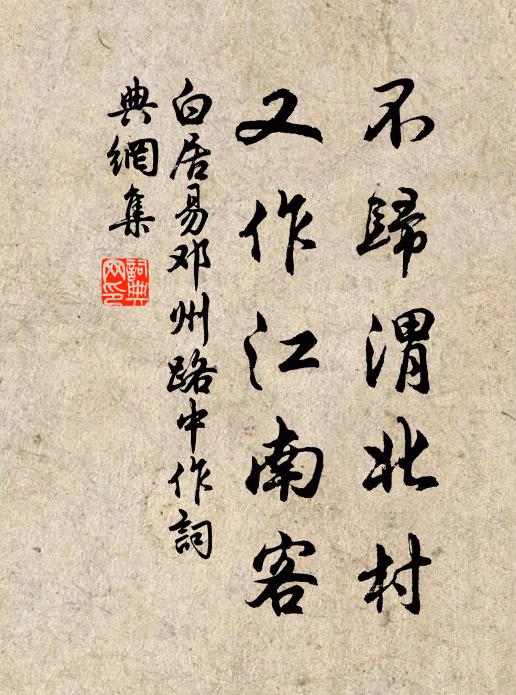 不歸渭北村
又作江南客
白居易邓州路中作詞
典網集
詞典网印